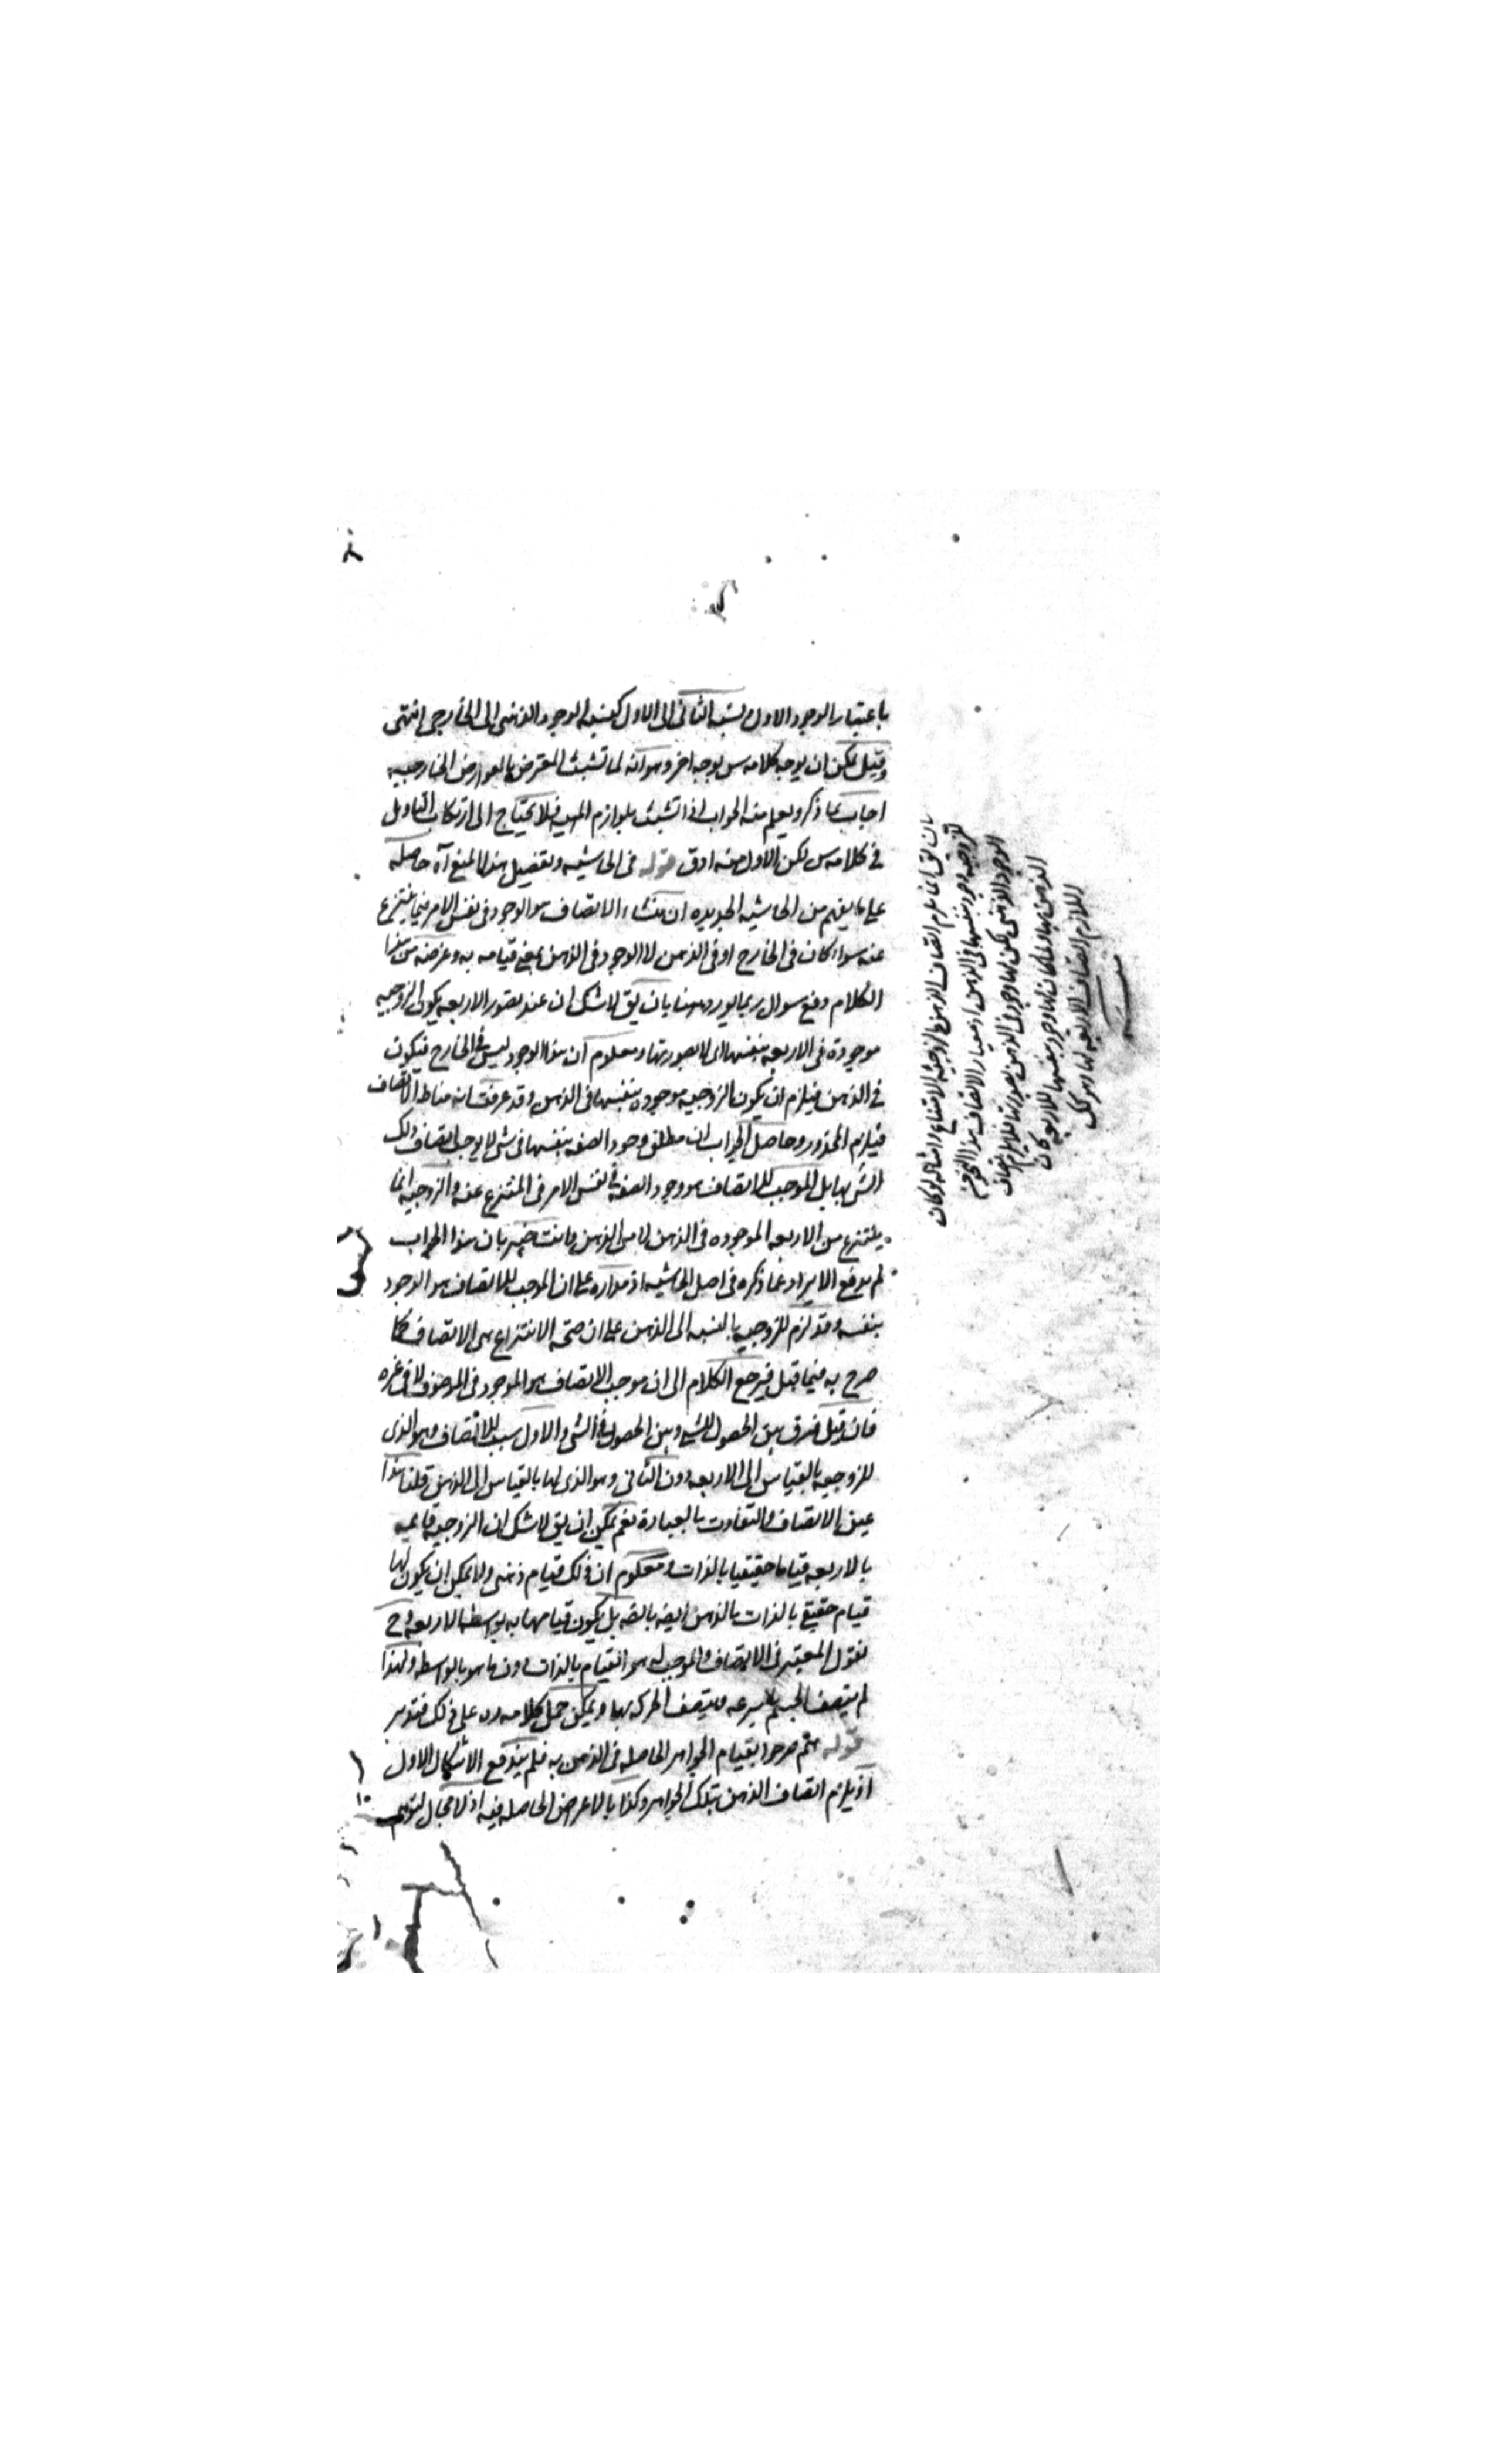 باعتبار الوجود الاول نسبة الثانى الى الاول كنسبة الوجود الذهنى الى الخارجى انتهى
وقيل يمكن ان يوجه كلامه س بوجه اخر وهو انه لما تشبث المعترض بالعوارض الخارجيه
اجاب بما ذكر ويعلم منه الجواب اذا تشبث بلوازم المهيه فلا يحتاج الى ارتكاب التاويل
فى كلامه س لكن الاول منه ادق قوله فى الحاشيه وتفصيل هذا المنع آه حاصله
على ما يفهم من الحاشيه الجديده ان منشاء الاتصاف هو الوجود فى نفس الامر فيما ينتزع
عنه سواء كان فى الخارج او فى الذهن لا الوجود فى الذهن بمعنى قيامه به وغرضه من هذا
الكلام دفع سوال ربما يورد ههنا بان يق لا شك ان عند تصور الاربعه يكون الزوجيه
موجودة فى الاربعه بنفسها اى لا بصورتها ومعلوم ان هذا الوجود ليس فى الخارج فيكون
فى الذهن فيلزم ان يكون الزوجيه موجوده بنفسها فى الذهن وقد عرفت انه مناط الاتصاف
فيلزم المحذور وحاصل الجواب ان مطلق وجود الصفه بنفسها فى شى لا يوجب اتصاف ذلك
الشى بها بل الموجب للاتصاف هو وجود الصفه فى نفس الامر فى المنتزع عنه والزوجيه انما
ينتزع من الاربعه الموجوده فى الذهن لا من الذهن وانت خبير بان هذا الجواب
لم يدفع الايراد عما ذكره فى اصل الحاشيه اذ مداره على ان الموجب للاتصاف هو الوجود
بنفسه وقد لزم للزوجيه بالنسبه الى الذهن على ان صحة الانتزاع هى الاتصاف كما
صرح به فيما قبل فيرجع الكلام الى ان موجب الاتصاف هو الموجود فى الموصوف لا فى غيره
فان قيل فرق بين الحصول للشى وبين الحصول فى الشى والاول سبب للاتصاف وهو الذى
للزوجيه بالقياس الى الاربعه دون الثانى وهو الذى لها بالقياس الى الذهن قلنا هذا
عين الاتصاف والتفاوت بالعبارة نعم يمكن ان يق لا شك ان الزوجيه قائمه
بالاربعه قياما حقيقيا بالذات ومعلوم ان ذلك قيام ذهنى ولا يمكن ان يكون لها
قيام حقيقى بالذات بالذهن ايضه بالضه بل يكون قيامها به بواسطه الاربعه وح
نقول المعتبر فى الاتصاف والموجب له هو القيام بالذات دون ما هو بالواسطه ولهذا
لم يتصف الجسم بالسرعه ويتصف الحركه بها ويمكن حمل كلامه ره على ذلك فتدبر
قوله ثم صرحوا بقيام الجواهر الحاصله فى الذهن به فلم يندفع الاشكال الاول
اذ يلزم اتصاف الذهن بتلك الجواهر وكذا بالاعراض الحاصله فيه اذ لا مجال لتوهم
بان يق انما يلزم اتصاف الذهن بالزوجيه والامتناع وامثاله لو كان
للزوجيه وجود بنفسها فى الذهن اذ معيار الاتصاف هذا النحو من
الوجود الذهنى لكن لها وجود فى الذهن بصورتها فلا يلزم اتصاف
الذهن بها ولما كان لها وجود بنفسها للاربعه كان
اللازم اتصاف الاربعه لها وهو كك